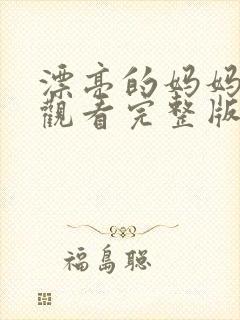 漂亮的妈妈
觀看完整版
福島聡